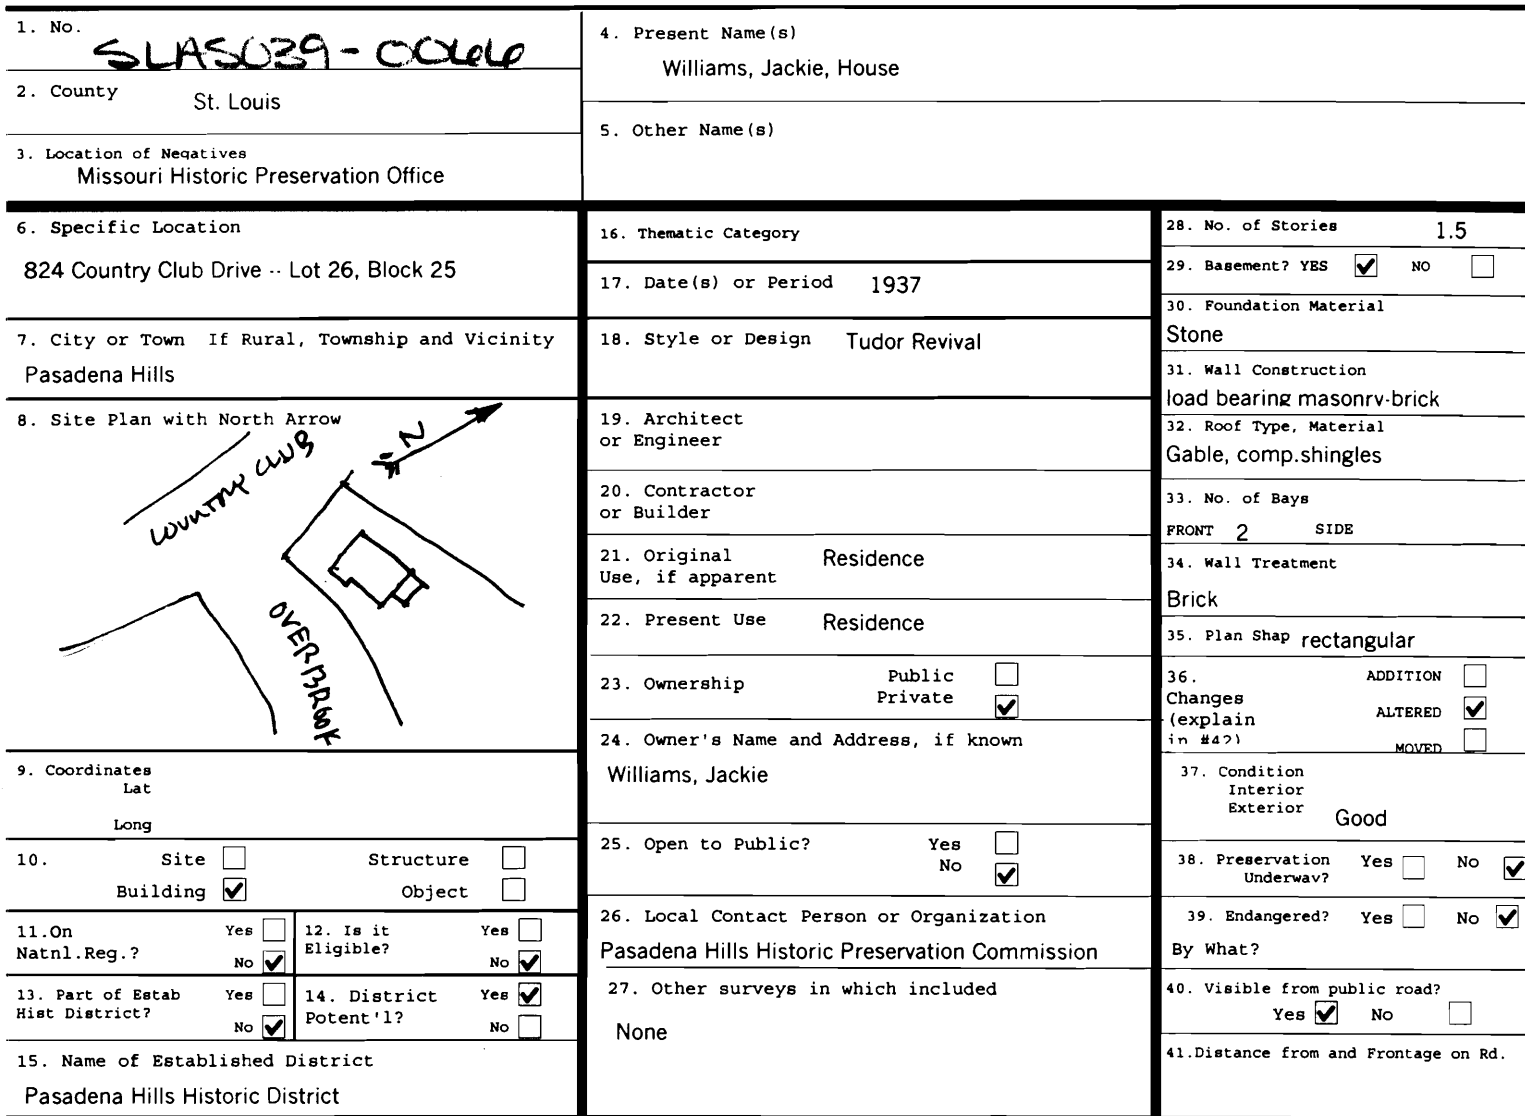 1. No. SLAS039-0066
2. County St. Louis
3. Location of Negatives
Missouri Historic Preservation Office
4. Present Name(s)
Williams, Jackie, House
5. Other Name(s)
6. Specific Location
824 Country Club Drive -- Lot 26, Block 25
7. City or Town If Rural, Township and Vicinity
Pasadena Hills
8. Site Plan with North Arrow
COUNTRY CLUB
N
OVERBROOK
9. Coordinates
Lat
Long
10. Site Structure
Building ✔ Object
11.On Yes
Natnl.Reg.? No ✔
12. Is it Yes
Eligible? No ✔
13. Part of Estab Yes
Hist District? No ✔
14. District Yes ✔
Potent'l? No
15. Name of Established District
Pasadena Hills Historic District
16. Thematic Category
17. Date(s) or Period 1937
18. Style or Design Tudor Revival
19. Architect
or Engineer
20. Contractor
or Builder
21. Original Residence
Use, if apparent
22. Present Use Residence
23. Ownership Public
Private ✔
24. Owner's Name and Address, if known
Williams, Jackie
25. Open to Public? Yes
No ✔
26. Local Contact Person or Organization
Pasadena Hills Historic Preservation Commission
27. Other surveys in which included
None
28. No. of Stories 1.5
29. Basement? YES ✔ NO
30. Foundation Material
Stone
31. Wall Construction
load bearing masonry-brick
32. Roof Type, Material
Gable, comp.shingles
33. No. of Bays
FRONT 2 SIDE
34. Wall Treatment
Brick
35. Plan Shap rectangular
36. ADDITION
Changes
(explain ALTERED ✔
in #42) MOVED
37. Condition
Interior
Exterior Good
38. Preservation Yes No ✔
Underway?
39. Endangered? Yes No ✔
By What?
40. Visible from public road?
Yes ✔ No
41.Distance from and Frontage on Rd.